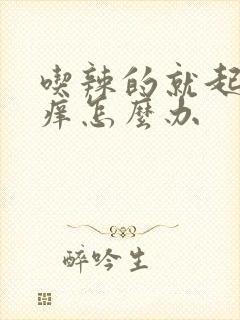 喫辣的就起
痒怎麼办
醉吟生